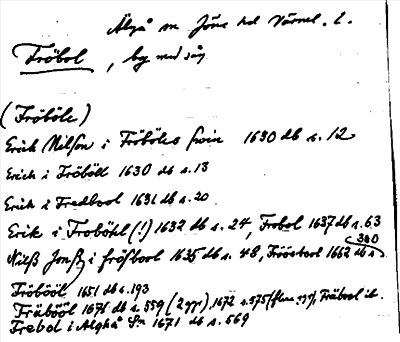 Älgå sn Jösse hd Värml. l.
Fröbol, by med såg
(Fröböle)
Erich Nilson i Fröböles 1630 db s. 12
Erich i Fröböll 1630 db s. 13
Erich i Fredbool 1631 db s. 20
Erik i Froböhl (!) 1632 db s. 24, Frobol 1637 db s. 63
Nilß Jonß i fröfbool 1635 db s. 48, 1662 db s. 300
Fröbööl 1651 db s. 193
Fräbööl 1671 db s. 559 (2 ggr), 1672 s. 575 (flera ggr), Fräbool ib.
Frebol i Alghå Sn 1671 db s. 569